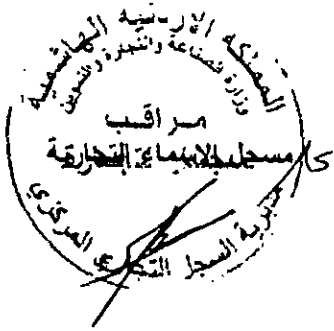 المملكة الاردنية الهاشمية
وزارة الصناعة والتجارة والتموين
مراقب
مسجل الاسماء التجارية
مديرية السجل التجاري المركزي